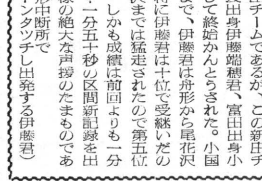 チームであるが、この新庄チ
田出身伊藤端穂君、富田出身小
して終始かんとうされた。小国
まで、伊藤君は舟形から尾花沢
特に伊藤君は十位で受継いだの
決では猛走されたので第五位
しかも成績は前回よりも一分
一分五十秒の区間新記録を出
様の絶大な声援のたまものであ
形中断所で
タッチし出発する伊藤君)